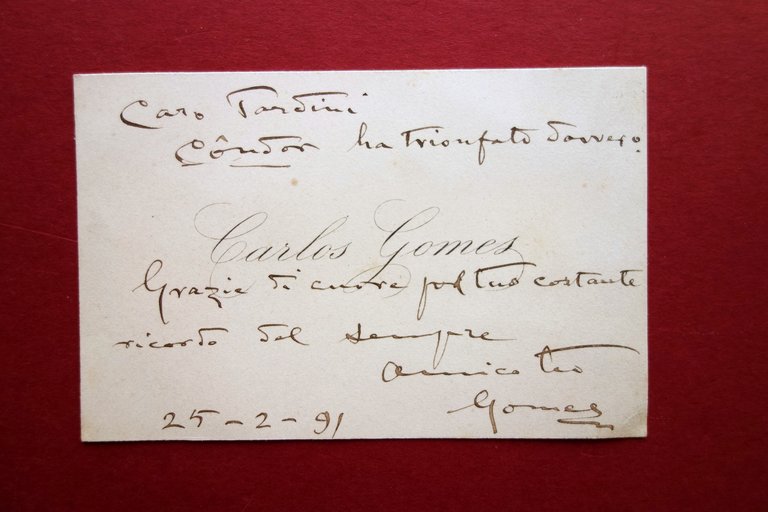 Caro Tardini
Côndor ha trionfato davvero
Carlos Gomes
Grazie di cuore pel tuo costante
ricordo del sempre
amico tuo
Gomes
25-2-91